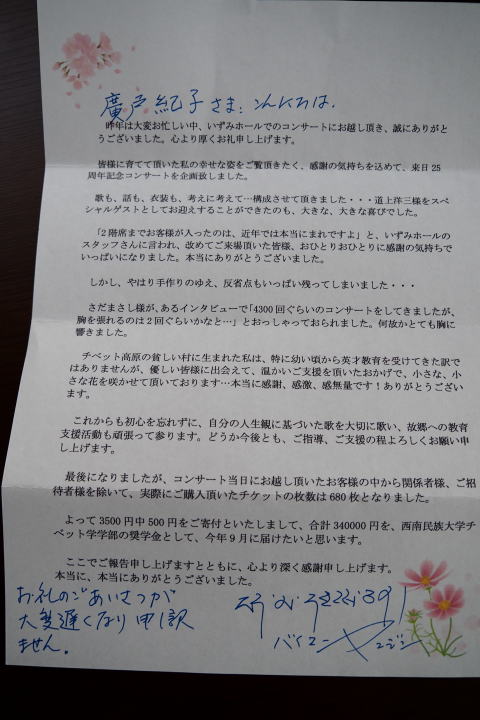 廣戸紀子さま:こんにちは.
昨年は大変お忙しい中、いずみホールでのコンサートにお越し頂き、誠にありがと
うございました。心より厚くお礼申し上げます。
皆様に育てて頂いた私の幸せな姿をご覧頂きたく、感謝の気持ちを込めて、来日25
周年記念コンサートを企画致しました。
歌も、話も、衣装も、考えに考えて…構成させて頂きました・・・道上洋三様をスペ
シャルゲストとしてお迎えすることができたのも、大きな、大きな喜びでした。
「2階席までお客様が入ったのは、近年では本当にまれですよ」と、いずみホールの
スタッフさんに言われ、改めてご来場頂いた皆様、おひとりおひとりに感謝の気持ちで
いっぱいになりました。本当にありがとうございました。
しかし、やはり手作りのゆえ、反省点もいっぱい残ってしまいました・・・
さだまさし様が、あるインタビューで「4300回ぐらいのコンサートをしてきましたが、
胸を張れるのは2回ぐらいかなと…」とおっしゃっておられました。何故かとても胸に
響きました。
チベット高原の貧しい村に生まれた私は、特に幼い頃から英才教育を受けてきた訳で
はありませんが、優しい皆様に出会えて、温かいご支援を頂いたおかげで、小さな、小
さな花を咲かせて頂いております…本当に感謝、感激、感無量です!ありがとうござい
ます。
これからも初心を忘れずに、自分の人生観に基づいた歌を大切に歌い、故郷への教育
支援活動も頑張って参ります。どうか今後とも、ご指導、ご支援の程よろしくお願い申
し上げます。
最後になりましたが、コンサート当日にお越し頂いたお客様の中から関係者様、ご招
待者様を除いて、実際にご購入頂いたチケットの枚数は680枚となりました。
よって3500円中500円をご寄付といたしまして、合計340000円を、西南民族大学チ
ベット学学部の奨学金として、今年9月に届けたいと思います。
ここでご報告申し上げますとともに、心より深く感謝申し上げます。
本当に、本当にありがとうございました。
お礼のごあいさつが
大変遅くなり申し訳
ません。
バイマーヤンジン